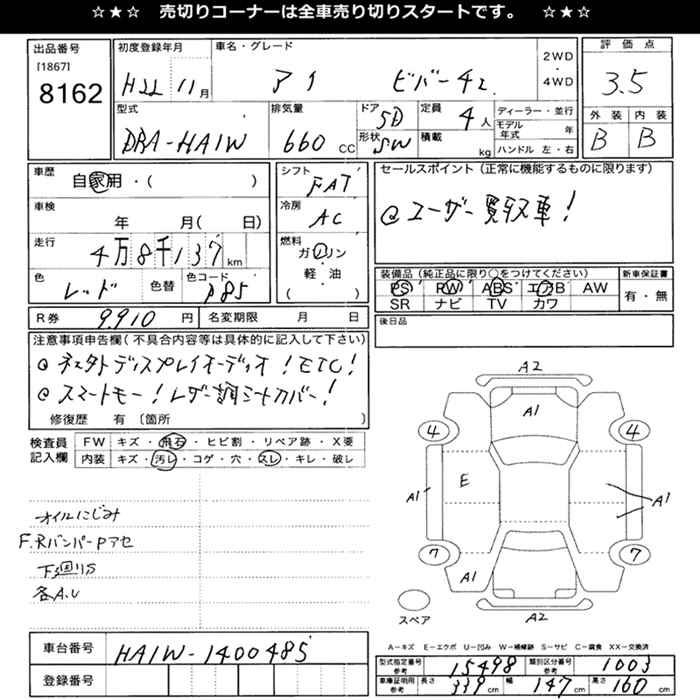 ☆★☆ 売切りコーナーは全車売り切りスタートです。 ☆★☆
出品番号
[1867]
8162
初度登録年月
H22 11月
車名・グレード
2WD
・
4WD
評価点
3.5
外装 内装
B B
型式
DBA-HA1W
排気量
660 CC
ドア
5D
形状
SW
定員
4人
積載
kg
ディーラー・並行
モデル年式 年
ハンドル 左・右
車歴
自家用・( )
シフト
FAT
車検
年 月( 日)
冷房
AC
走行
4万8千137km
燃料
ガソリン
・
軽・油
( )
色
レッド
色替
色コード
P85
セールスポイント (正常に機能するものに限ります)
@ユーザー買取車!
装備品(純正品に限り○をつけてください)
PS PW ABS エアB AW
SR ナビ TV カワ
新車保証書
有・無
後日品
R券
9,910 円
名変期限 月 日
注意事項申告欄(不具合内容等は具体的に記入して下さい)
@ディスプレイオーディオ!ETC!
@スマートキー!レザー調シートカバー!
修復歴 有 〔箇所 〕
検査員
記入欄
FW キズ・飛石・ヒビ割・リペア跡・X要
内装 キズ・汚レ・コゲ・穴・スレ・キレ・破レ
オイルにじみ
F.RバンパーPアセ
下回りS
各A.U
A2
A1
4 4
E
A1 A1
7 7
A1
スペア
A2
A=キズ E=エクボ U=凹み W=補修跡 S=サビ C=腐食 XX=交換済
車台番号
HA1W-1400485
登録番号
型式指定番号
参考
15498
類別区分番号
参考
1003
車庫証明用
参考
長さ 339 cm 幅 147 cm 高さ 160 cm